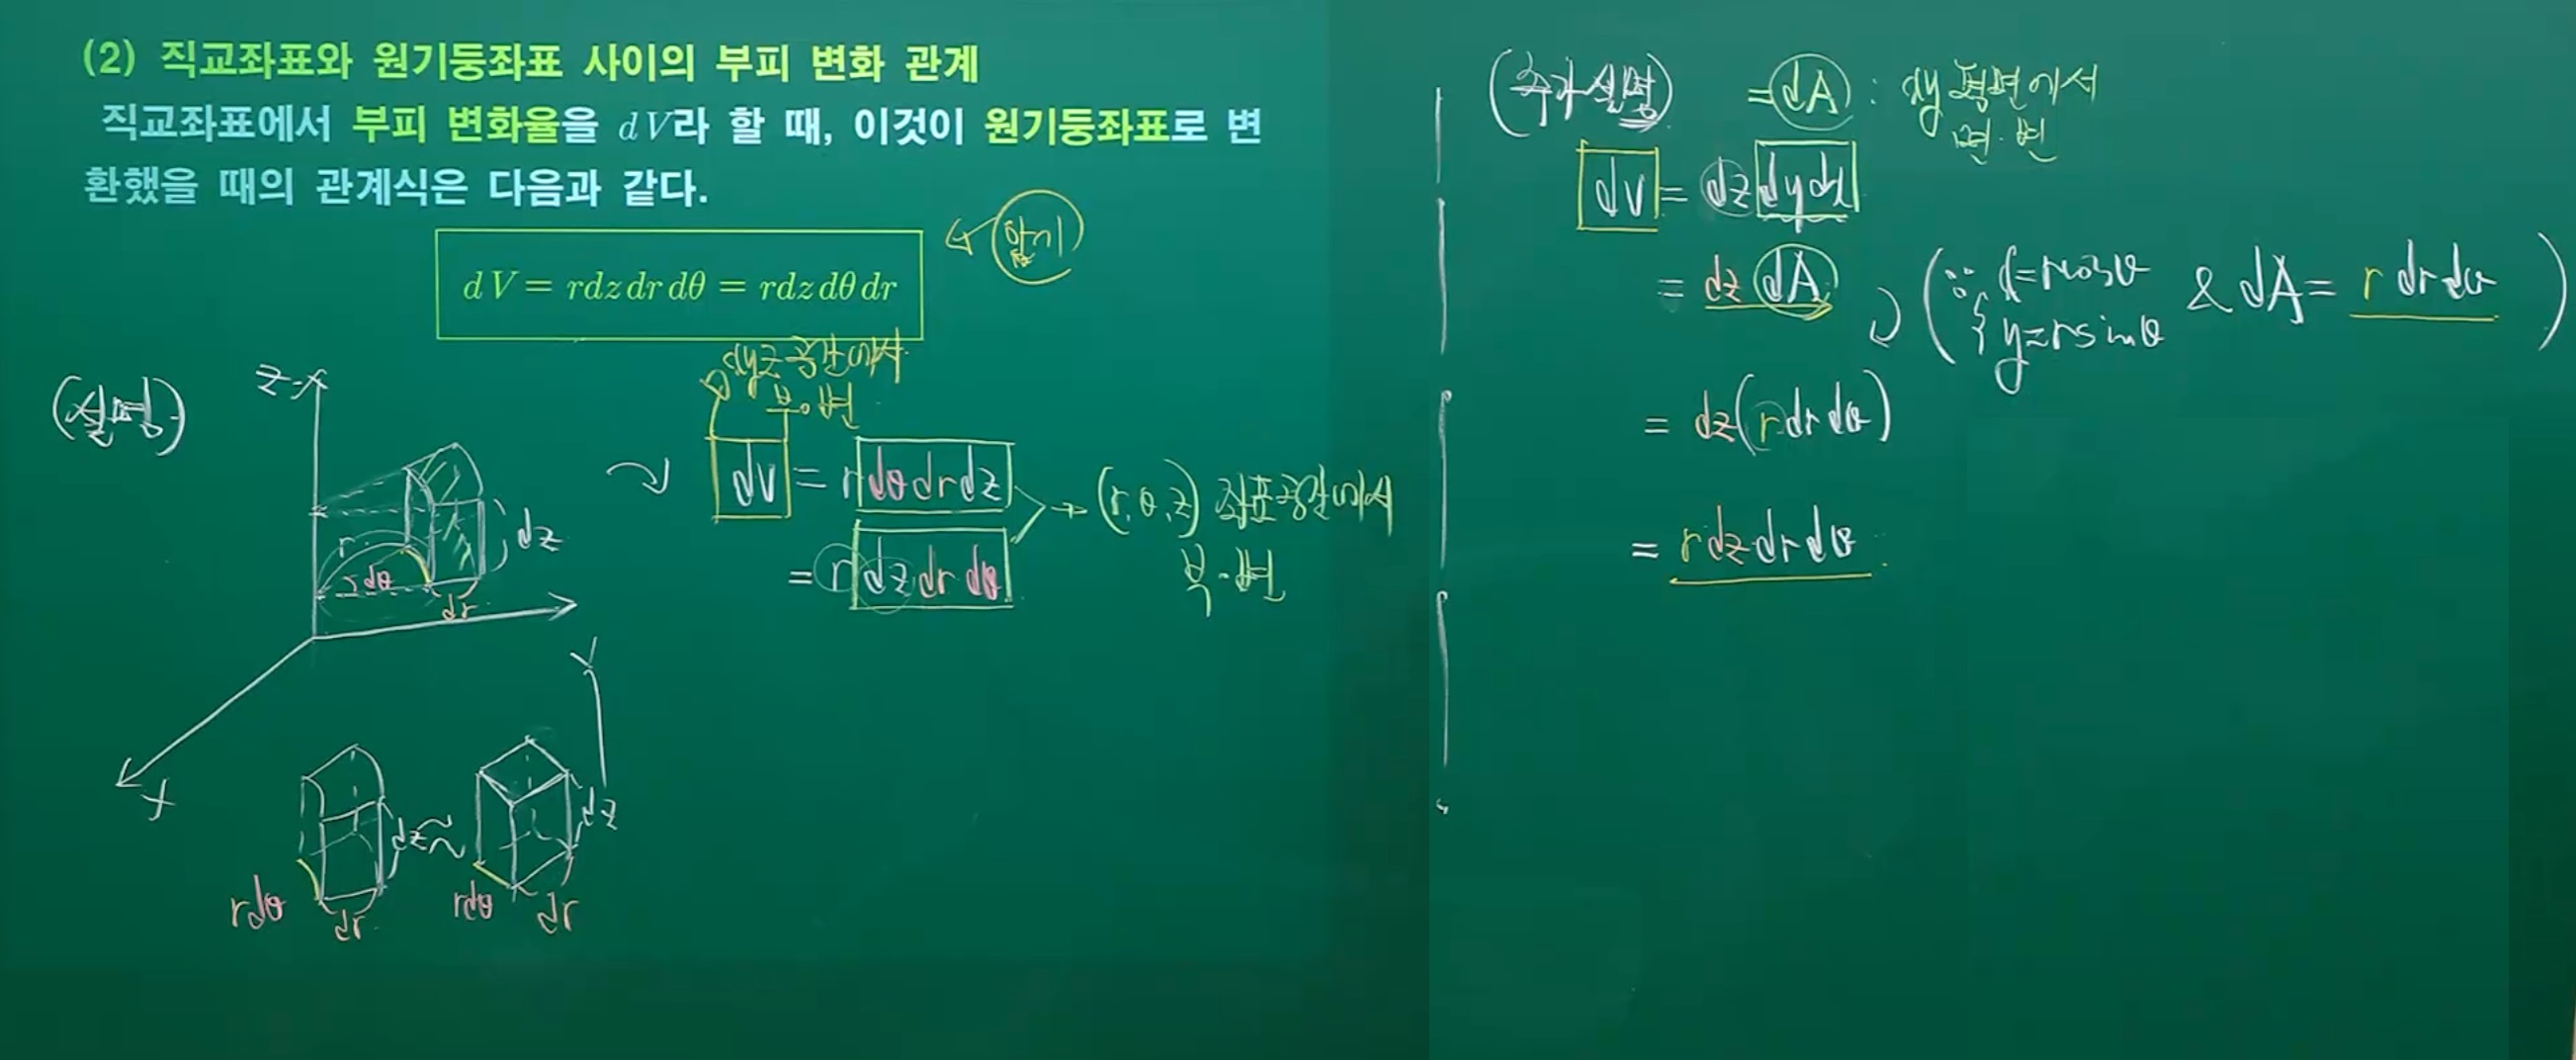 (2) 직교좌표와 원기둥좌표 사이의 부피 변화 관계
직교좌표에서 부피 변화율을 dV라 할 때, 이것이 원기둥좌표로 변
환했을 때의 관계식은 다음과 같다.
dV = rdz dr dθ = rdz dθ dr
암기
(설명)
z
r
rdθ
dr
dz
x
y
xyz 공간에서
부.변
dV = r dθ dr dz
= r dz dr dθ
→ (r, θ, z) 좌표공간에서
부.변
rdθ
dr
dz
≈
rdθ
dr
dz
(추가설명)
= dA : xy 평면에서
면.변
dV = dz dy dx
= dz dA
(∵ { x = r cosθ
y = r sinθ
& dA = r dr dθ )
= dz (r dr dθ)
= r dz dr dθ